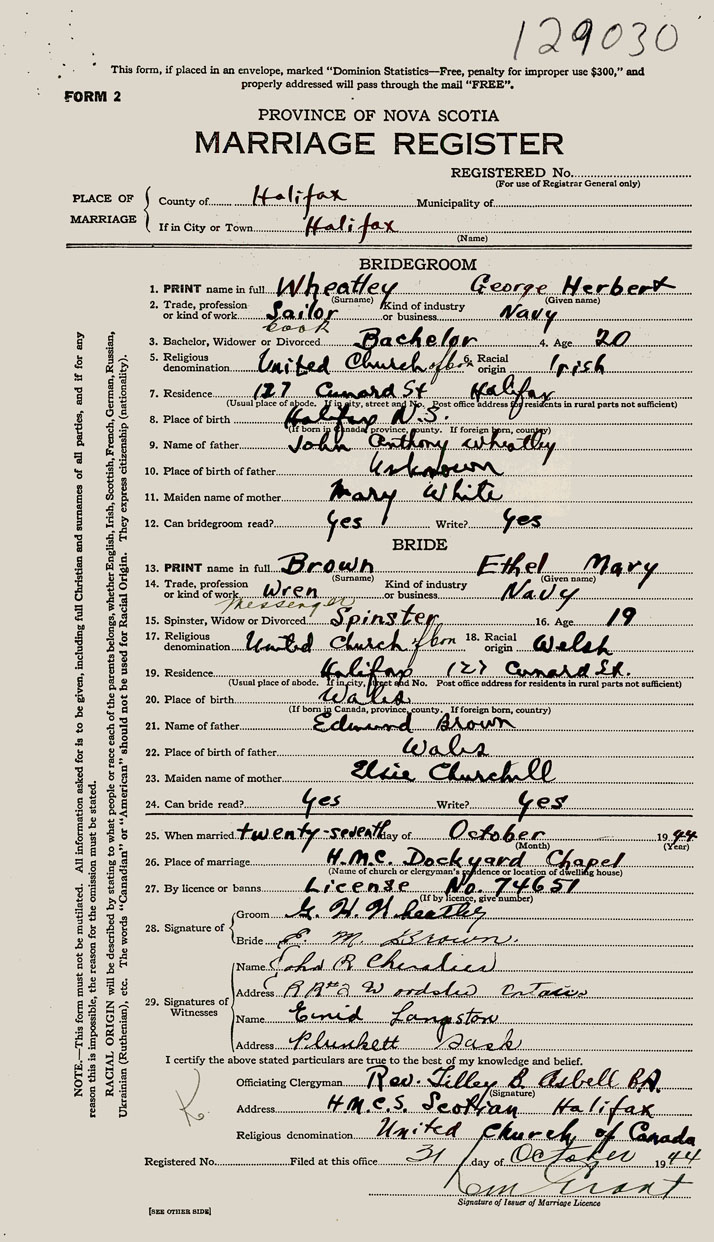 129030
This form, if placed in an envelope, marked "Dominion Statistics—Free, penalty for improper use $300," and
properly addressed will pass through the mail "FREE".
FORM 2
PROVINCE OF NOVA SCOTIA
MARRIAGE REGISTER
REGISTERED No.
(For use of Registrar General only)
PLACE OF MARRIAGE
County of Halifax Municipality of
If in City or Town Halifax
(Name)
BRIDEGROOM
1. PRINT name in full Wheatley George Herbert
(Surname) (Given name)
2. Trade, profession or kind of work Sailor Kind of industry or business Navy
cook
3. Bachelor, Widower or Divorced Bachelor 4. Age 20
5. Religious denomination United Church of Can 6. Racial origin Irish
7. Residence 127 Cunard St Halifax
(Usual place of abode. If in city, street and No. Post office address for residents in rural parts not sufficient)
8. Place of birth Halifax N.S.
(If born in Canada, province, county. If foreign born, country)
9. Name of father John Anthony Wheatley
10. Place of birth of father Unknown
11. Maiden name of mother Mary White
12. Can bridegroom read? Yes Write? Yes
BRIDE
13. PRINT name in full Brown Ethel Mary
(Surname) (Given name)
14. Trade, profession or kind of work Wren Kind of industry or business Navy
Messenger
15. Spinster, Widow or Divorced Spinster 16. Age 19
17. Religious denomination United Church of Can 18. Racial origin Welsh
19. Residence Halifax 127 Cunard St.
(Usual place of abode. If in city, street and No. Post office address for residents in rural parts not sufficient)
20. Place of birth Wales
(If born in Canada, province, county. If foreign born, country)
21. Name of father Edmund Brown
22. Place of birth of father Wales
23. Maiden name of mother Elsie Churchill
24. Can bride read? Yes Write? Yes
25. When married twenty-seventh day of October 1944
(Month) (Year)
26. Place of marriage H.M.C. Dockyard Chapel
(Name of church or clergyman's residence or location of dwelling house)
27. By licence or banns License No. 74651
(If by licence, give number)
28. Signature of
Groom G. H. Wheatley
Bride E M. Brown.
29. Signatures of Witnesses
Name John R Chevalier
Address R R #2 Woodslee Ontario
Name Enid Langston
Address Plunkett Sask
I certify the above stated particulars are true to the best of my knowledge and belief.
Officiating Clergyman Rev. Tilley B. Asbell B.A.
(Signature)
Address H.M.C.S. Scotian Halifax
Religious denomination United Church of Canada
Registered No. Filed at this office 31 day of October 1944
Grant
Signature of Issuer of Marriage Licence
[SEE OTHER SIDE]
NOTE.—This form must not be mutilated. All information asked for is to be given, including full Christian and surnames of all parties, and if for any
reason this is impossible, the reason for the omission must be stated.
RACIAL ORIGIN will be described by stating to what people or race each of the parents belongs, whether English, Irish, Scottish, French, German, Russian,
Ukrainian (Ruthenian), etc. The words "Canadian" or "American" should not be used for Racial Origin. They express citizenship (nationality).